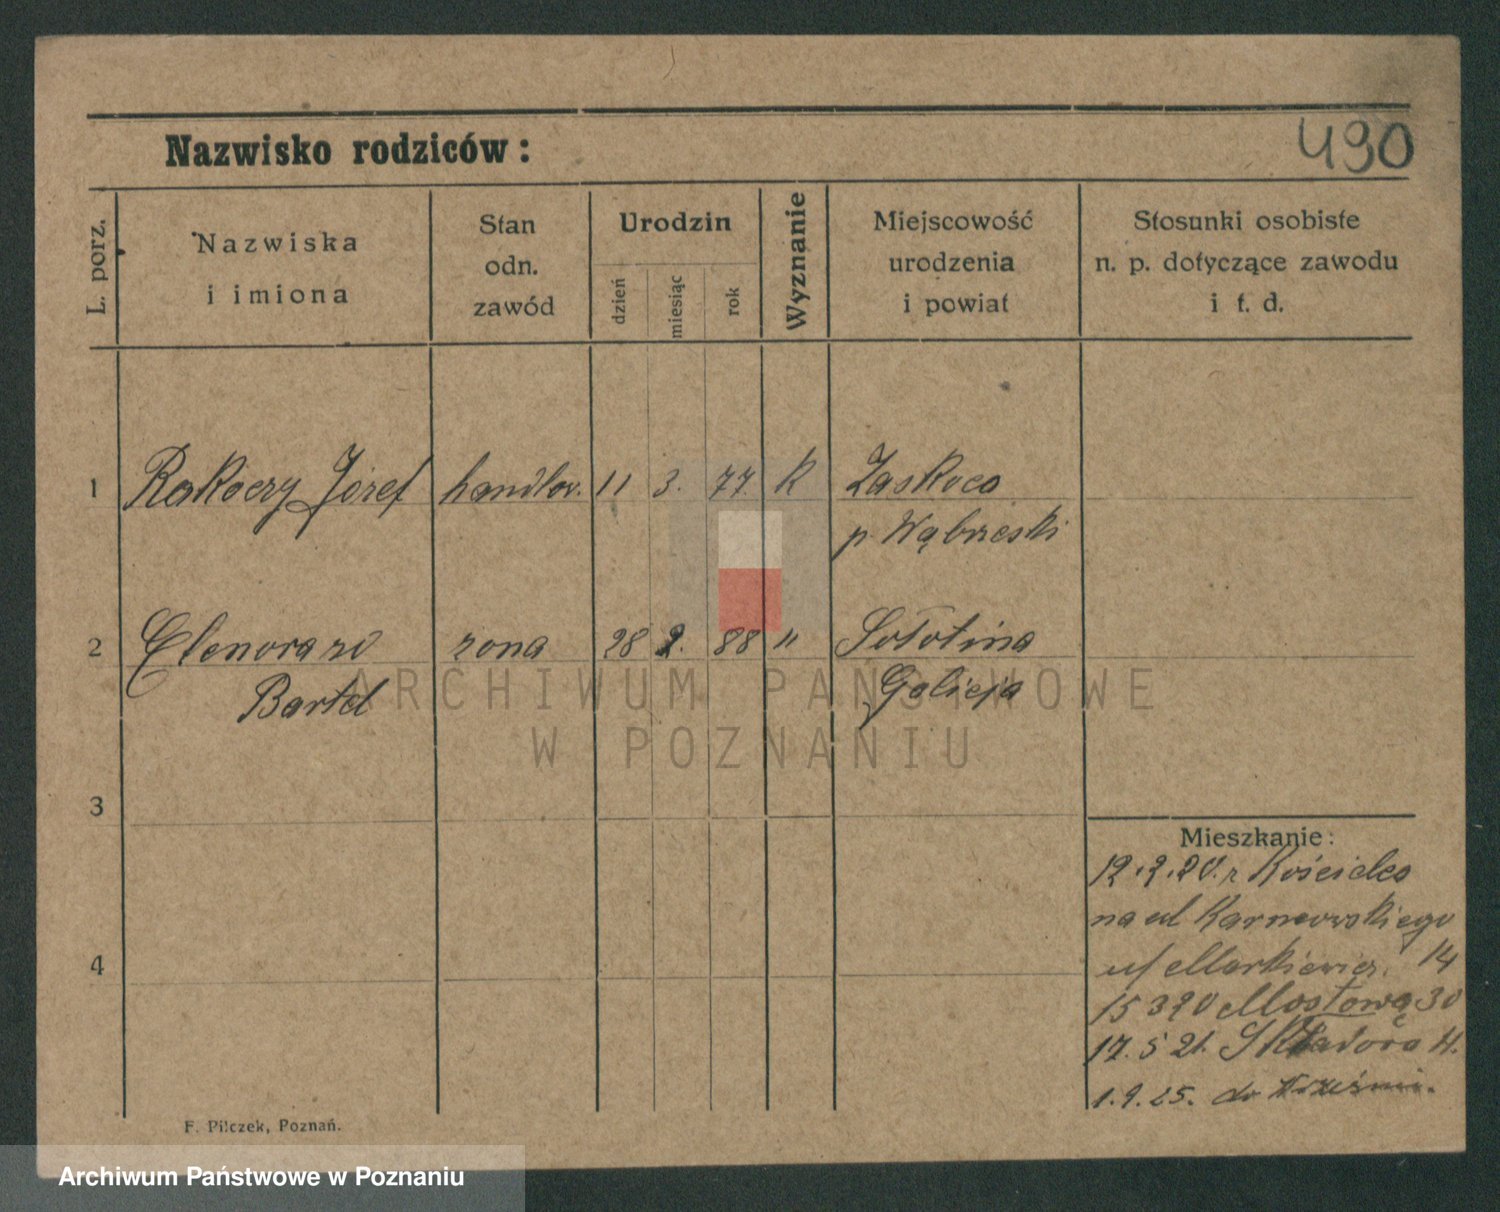 Nazwisko rodziców:
490
L. porz.
Nazwiska
i imiona
Stan
odn.
zawód
Urodzin
dzień
miesiąc
rok
Wyznanie
Miejscowość
urodzenia
i powiat
Stosunki osobiste
n. p. dotyczące zawodu
i t. d.
1 Rakoczy Józef handlow. 11 3. 77. K Zaskocz
p Wąbrzeski
2 Elenora zd żona 28 2. 88 " Sołotina
Bartel Galicja
3
4
Mieszkanie:
12.2.20. z Kościelca
na ul Karnowskiego
u/ Markiewicz. 14
15 3 20 Mostowa 30
17. 5 21. Składowa 4.
1.9.25. do Wrześni.
F. Pilczek, Poznań.
ARCHIWUM PAŃSTWOWE
W POZNANIU
Archiwum Państwowe w Poznaniu